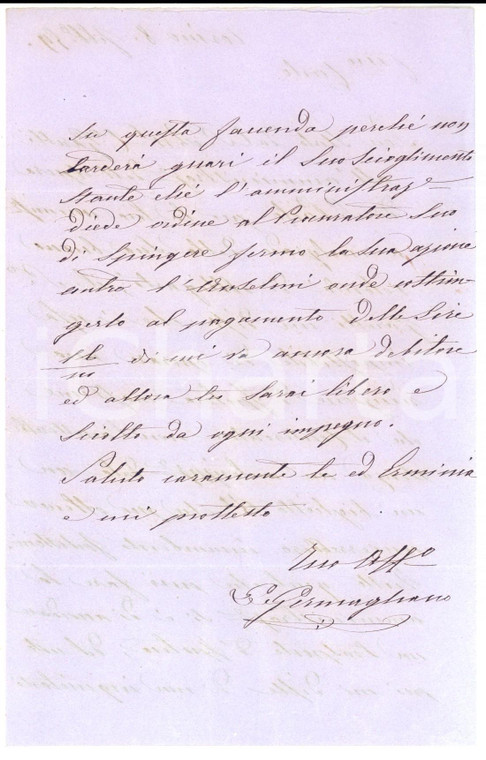 su questa faccenda perché non
tarderà guari il suo scioglimento
stante ché l'amministraz.e
diede ordine al Procuratore suo
di spingere fermo la sua azione
contro l'Anselmi onde costrin-
gerlo al pagamento delle Lire
di cui va ancora debitore
ed allora tu sarai libero e
sciolto da ogni impegno.
Saluto caramente te ed Erminia
e mi protesto
Tuo Affo
Germagliano
iCharta